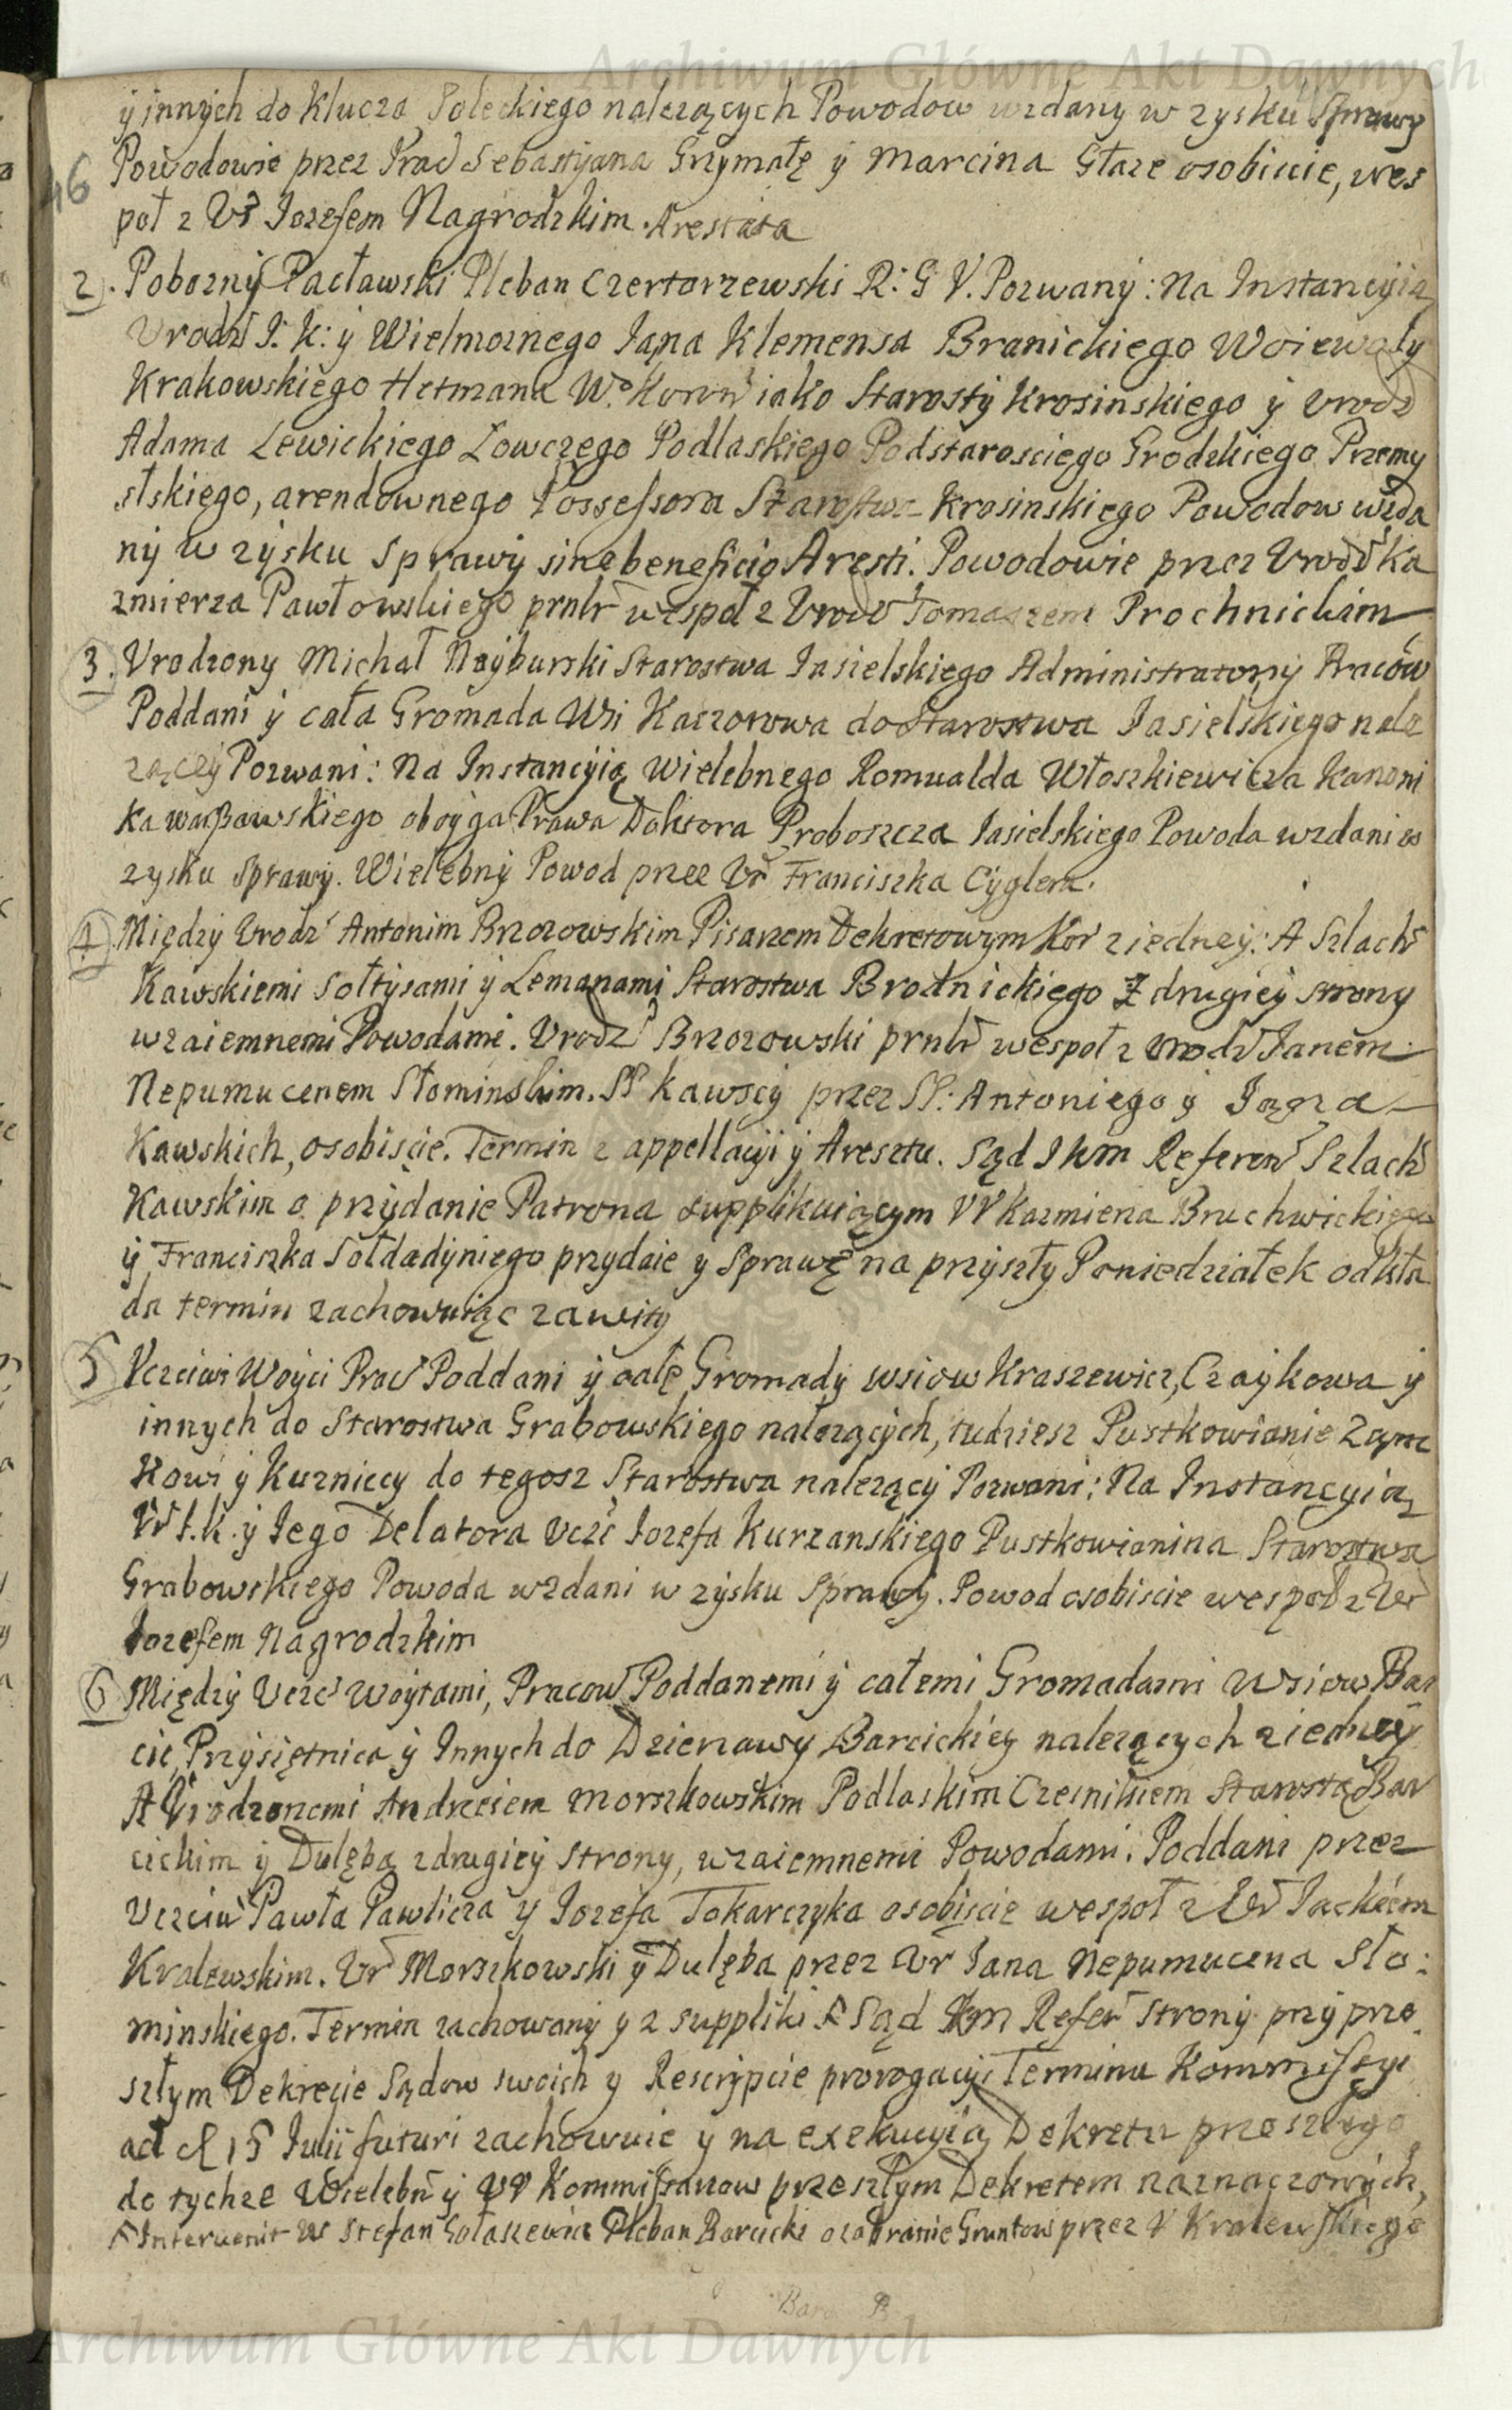 Archiwum Główne Akt Dawnych
y innych do Klucza Soleckiego nalezących Powodow wzdany w zysku Sprawy
46 Powodowie przez Prac Sebastyana Grzymałę y Marcina Głaze osobiscie, wes
poł z Ur Iozefem Nagrodzkim. Arestata
2. Pobozny Pacławski Pleban Czertorzewski R: G V. Pozwany: Na Instancyią
Urodz I: K: y Wielmoznego Iana Klemensa Branickiego Woiewody
Krakowskiego Hetmana W. Koron iako Starosty Krosinskiego y Urodz
Adama Lewickiego Łowczego Podlaskiego Podstarosciego Grodzkiego Przemy
slskiego, arendownego Possessora Starostwa Krosinskiego Powodow wzda
ny w zysku Sprawy sine beneficio Aresti. Powodowie przez Urodz Ka
zmierza Pawłowskiego prntr wespoł z Urodz Tomaszem Prochnickim
3. Urodzony Michał Nayburski Starostwa Iasielskiego Administratorzy Pracow
Poddani y cała Gromada Wsi Kaczorowa do Starostwa Iasielskiego nale
zący Pozwani: Na Instancyią Wielebnego Romualda Włoszkiewicza Kanoni
ka warszawskiego oboyga Prawa Doktora Proboszcza Iasielskiego Powoda wzdani w
zysku Sprawy. Wielebny Powod przez Ur Franciszka Cyglera.
4. Między Urodz Antonim Brzozowskim Pisarzem Dekretowym Kor z iedney: A Szlach
Kawskiemi Sołtysami y Lemanami Starostwa Brodnickiego Z drugiey strony
wzaiemnemi Powodami. Urodz Brzozowski prntr wespoł z Urodz Ianem
Nepumucenem Słominskim. SS Kawscy przez SS: Antoniego y Iana
Kawskich, osobiscie. Termin z appellacyi y Aresztu. Sąd IKM Referen Szlach
Kawskim o przydanie Patrona supplikuiącym VV Kazmierza Bruchwickiego
y Franciszka Sołdadyniego przydaie y Sprawę na przyszły Poniedziałek odkła
da termin zachowuiąc zawity
5 Uczciwi Woyci Prac Poddani y całe Gromady wsiow Kraszewicz, Czaykowa y
innych do Starostwa Grabowskiego nalezących, tudziesz Pustkowianie Zamc
kowi y Kuzniccy do tegosz Starostwa nalezący Pozwani: Na Instancyią
Ur I. K. y Iego Delatora Uczc Iozefa Kurzanskiego Pustkowianina Starostwa
Grabowskiego Powoda wzdani w zysku Sprawy. Powod osobiscie wespoł z Ur
Iozefem Nagrodzkim
6 Między Uczc Woytami, Pracow Poddanemi y całemi Gromadami Wsiow Bar
cic, Przysiętnica y Innych do Dzierzawy Barcickiey nalezących z iedney
A Urodzonemi Andrzeiem Morszkowskim Podlaskim Czesnikiem Starostą Bar
cickim y Dulębą z drugiey strony, wzaiemnemi Powodami. Poddani przez
Uczciw Pawła Pawlicza y Iozefa Tokarczyka osobiscie wespoł z Ur Iackiem
Kralewskim. Ur Morszkowski y Dulęba przez Ur Iana Nepumucena Sło:
minskiego. Termin zachowany y z suppliki Sąd IKM Refer strony przy prze
szłym Dekrecie Sądow swoich y Rescrypcie prorogacyi Terminu Kommissyi
ad d 15 Iulii futuri zachowuie y na exekucyią Dekretu przeszłego
do tychze Wielebn y VV Kommissarzow przeszłym Dekretem naznaczonych,
Intervenit W Stefan Gołaszewicz Pleban Barcicki o zabranie Gruntow przez V Kralewskiego
Archiwum Główne Akt Dawnych